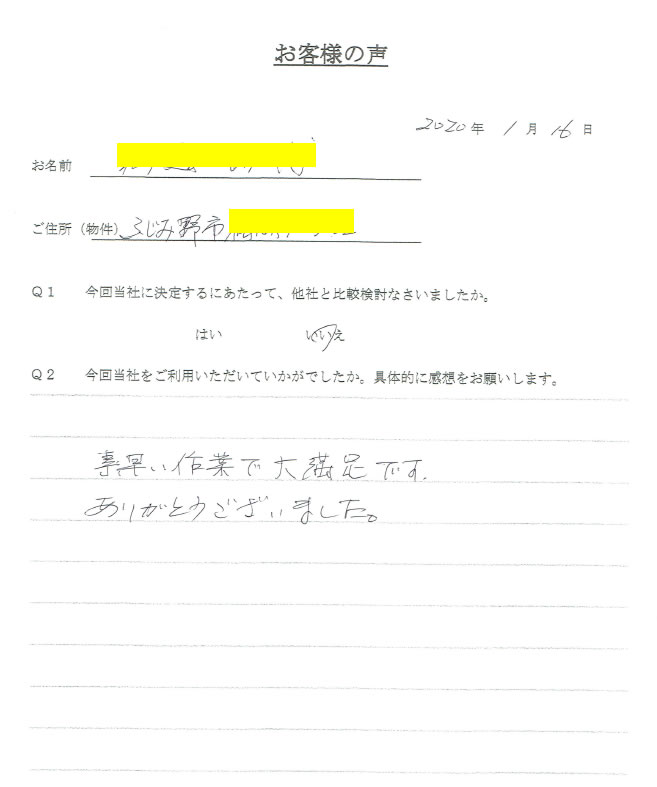 お客様の声
2020年 1月 16日
お名前
ご住所（物件） ふじみ野市
Q1 今回当社に決定するにあたって、他社と比較検討なさいましたか。
はい いいえ
Q2 今回当社をご利用いただいていかがでしたか。具体的に感想をお願いします。
事早い作業で大満足です.
ありがとうございました。